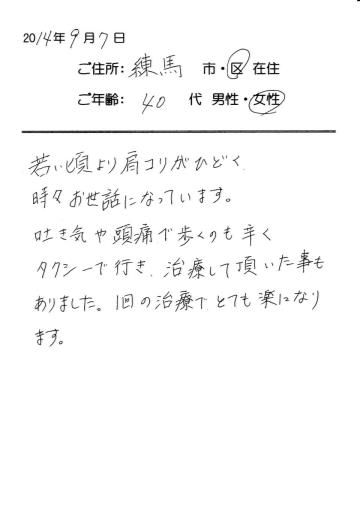 2014年9月7日
ご住所: 練馬 市・区 在住
ご年齢: 40 代 男性・女性
若い頃より肩コリがひどく
時々お世話になっています。
吐き気や頭痛で歩くのも辛く
タクシーで行き、治療して頂いた事も
ありました。1回の治療でとても楽になり
ます。